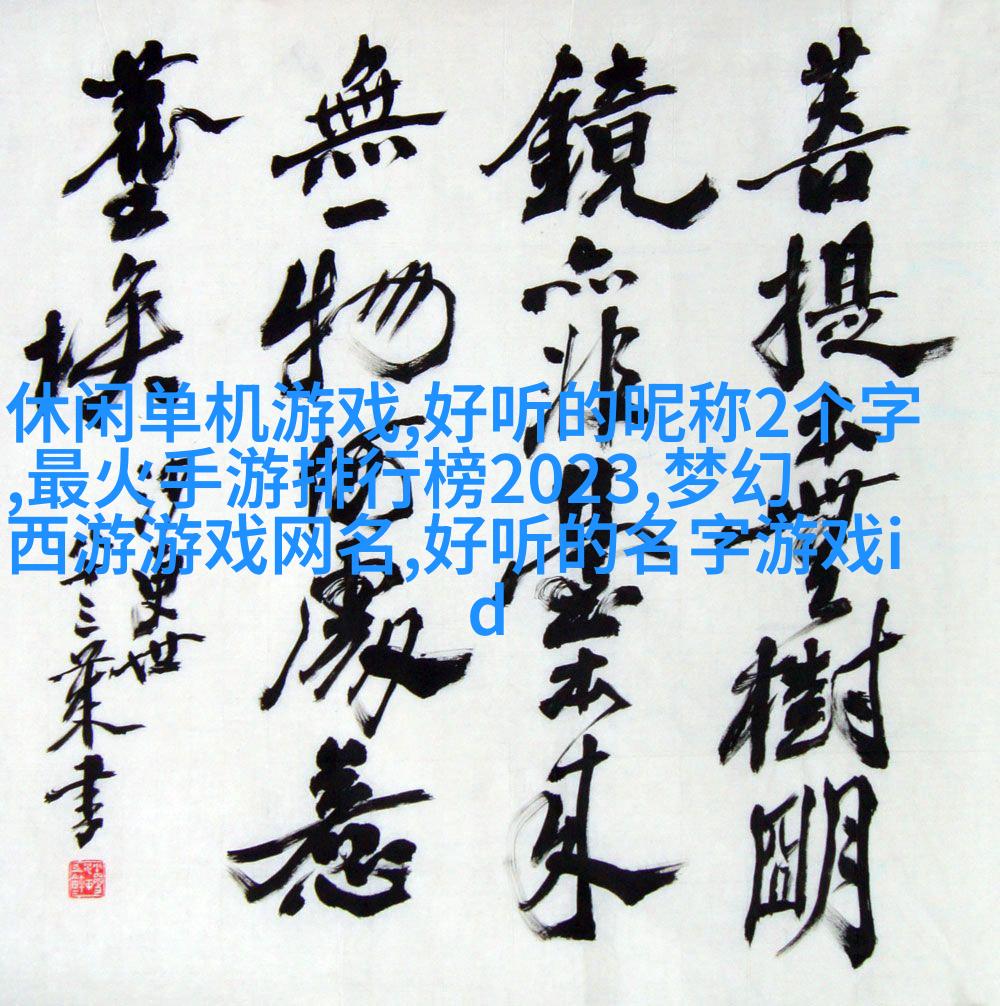 菩提本無樹明
鏡亦非臺本來
無一物何處惹
塵埃
史世
三葉書
休闲单机游戏,好听的昵称2个字
,最火手游排行榜2023,梦幻
西游游戏网名,好听的名字游戏i
d